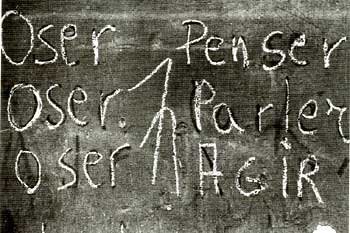 Oser Penser
Oser. Parler
oser AGiR